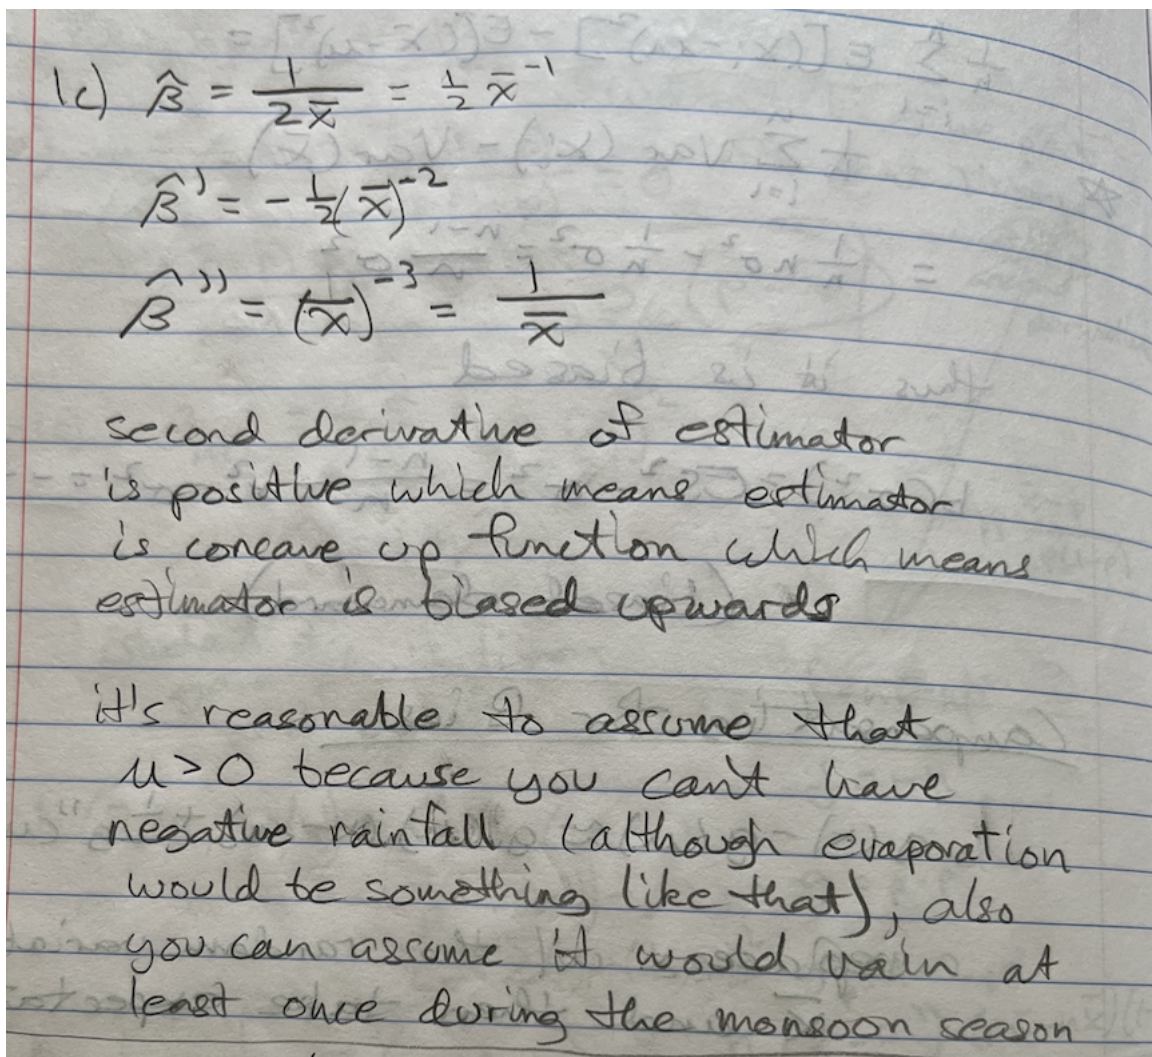 1c) β̂ = 1/(2x̄) = ½ x̄⁻¹
β̂' = -½(x̄)⁻²
β̂'' = (x̄)⁻³ = 1/x̄
second derivative of estimator
is positive which means estimator
is concave up function which means
estimator is biased upwards
it's reasonable to assume that
μ>0 because you can't have
negative rainfall (although evaporation
would be something like that), also
you can assume it would rain at
least once during the monsoon season